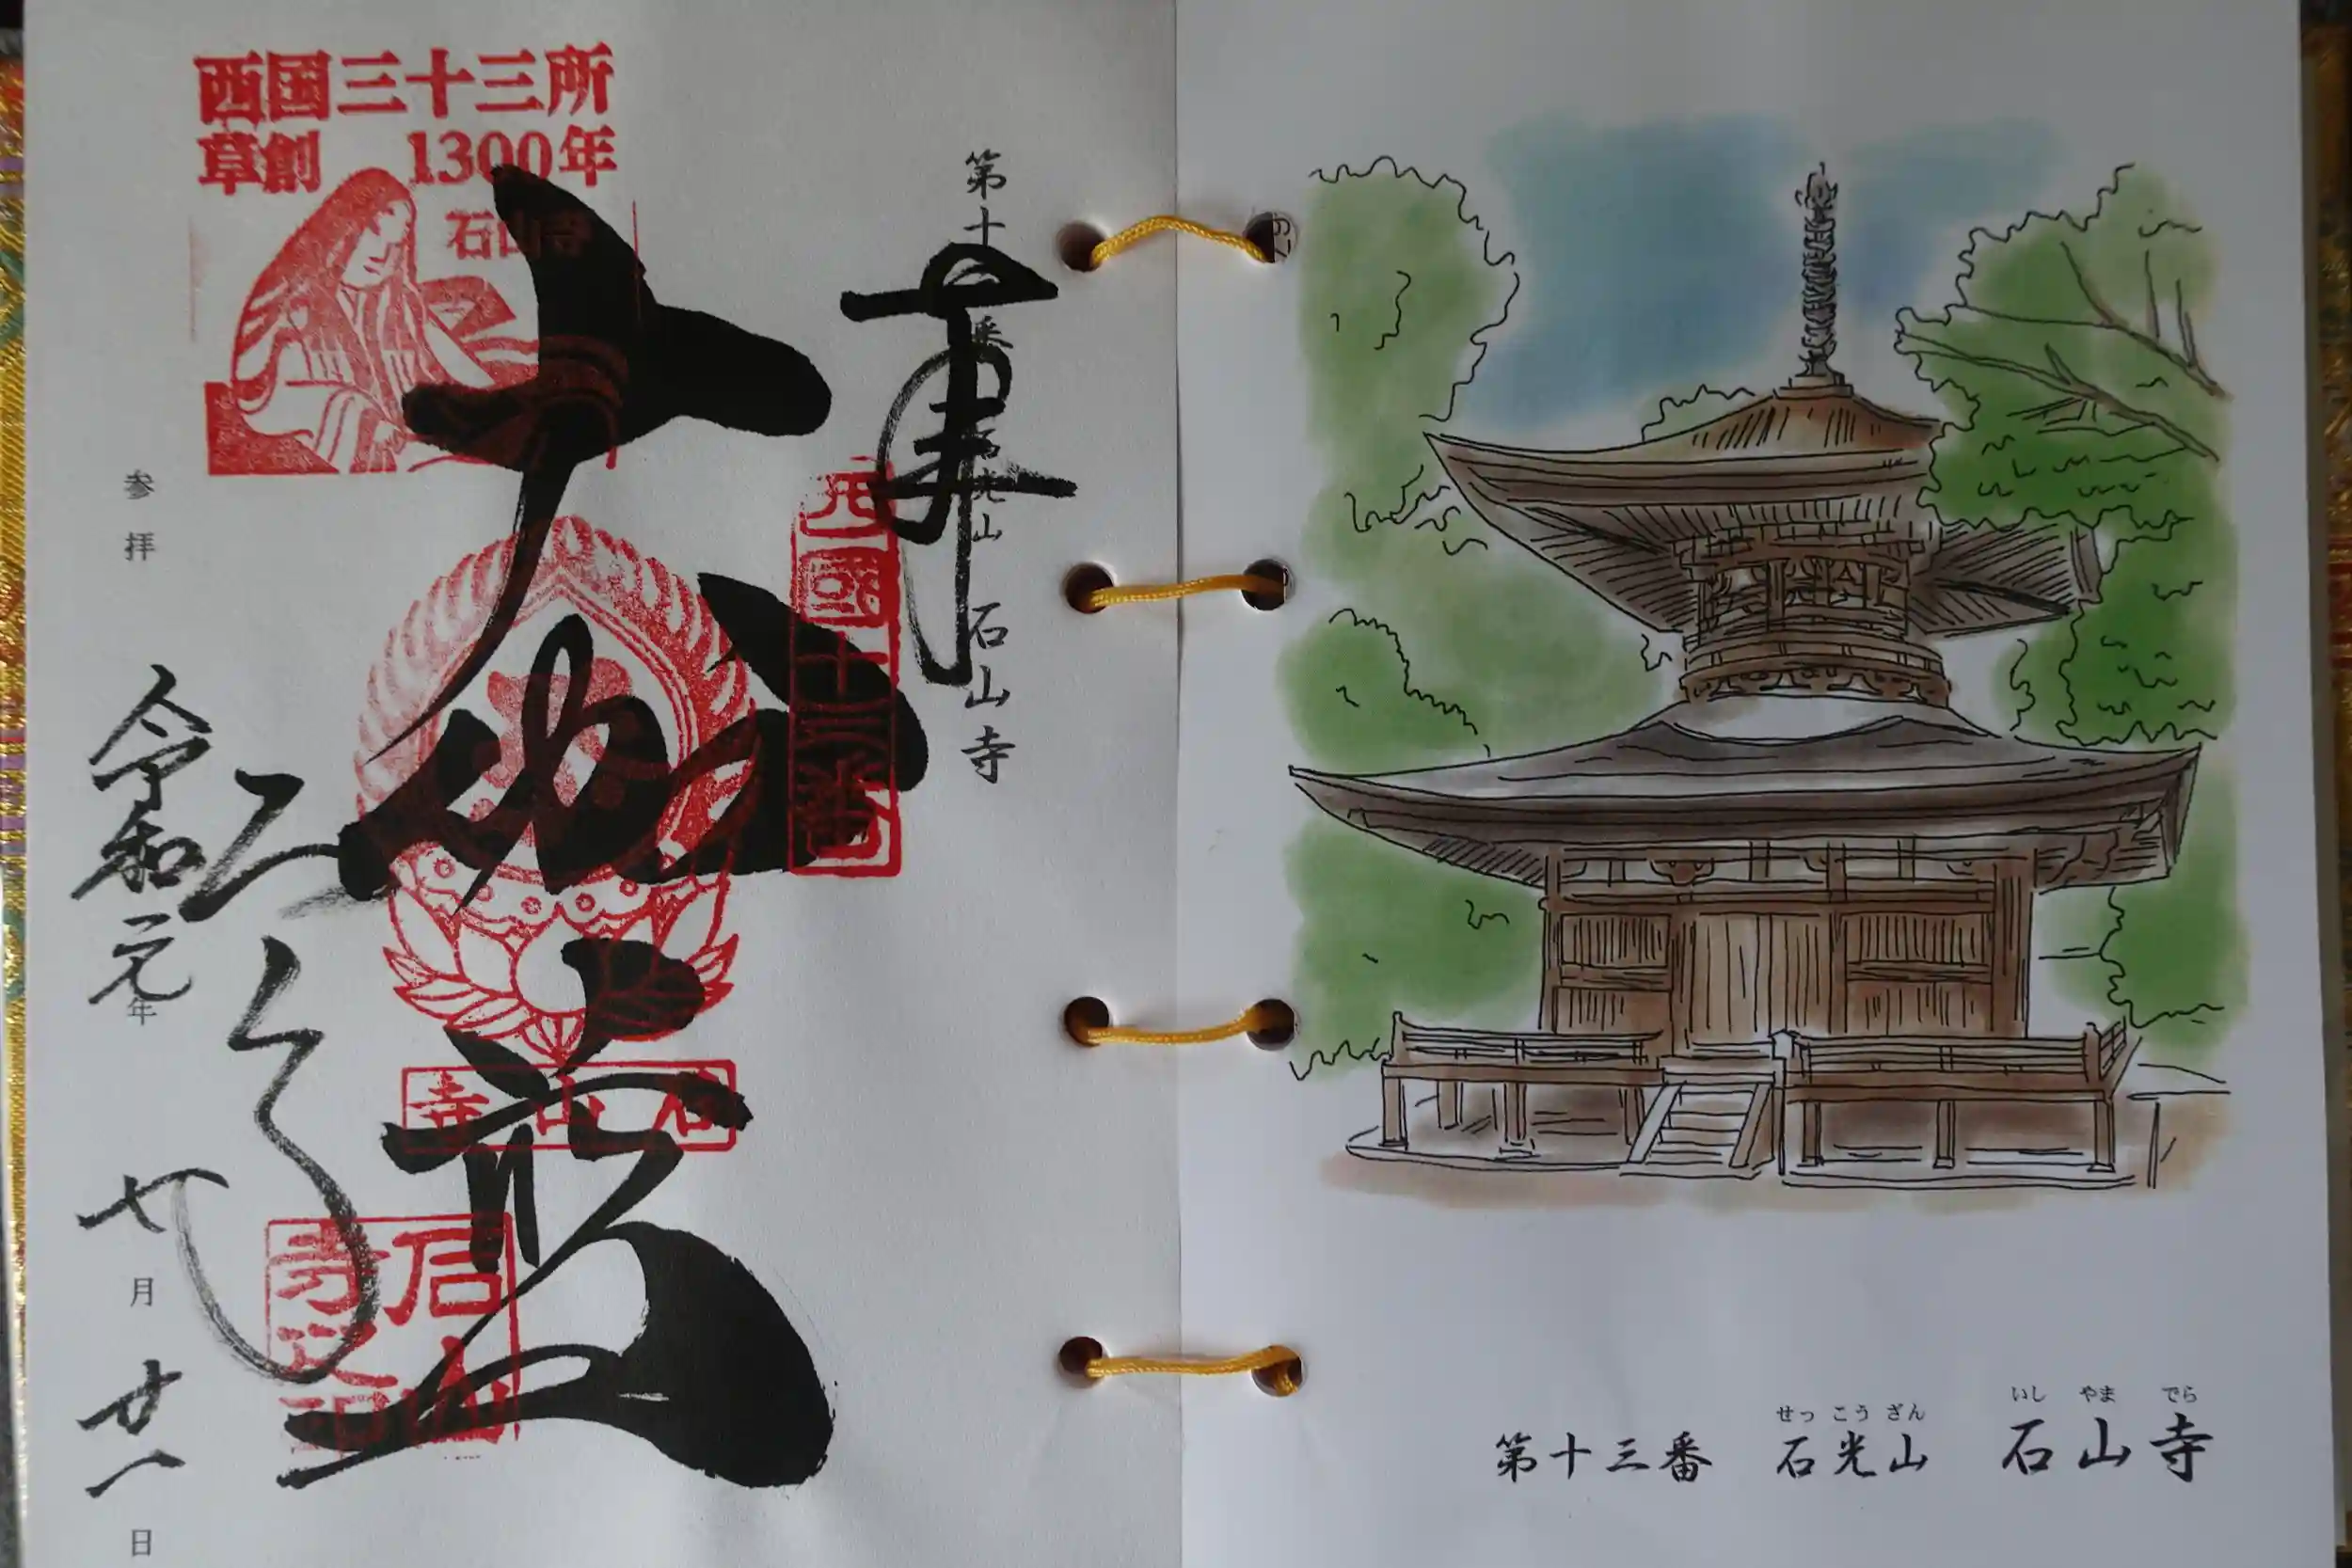 西国三十三所
草創 1300年
石山寺
奉
第十三番 石光山 石山寺
西國十三番
大伽藍
石山寺
石山寺之印
参拝
令和元年 七月廿一日
第十三番 石光山 石山寺
せっこうざん いしやまでら